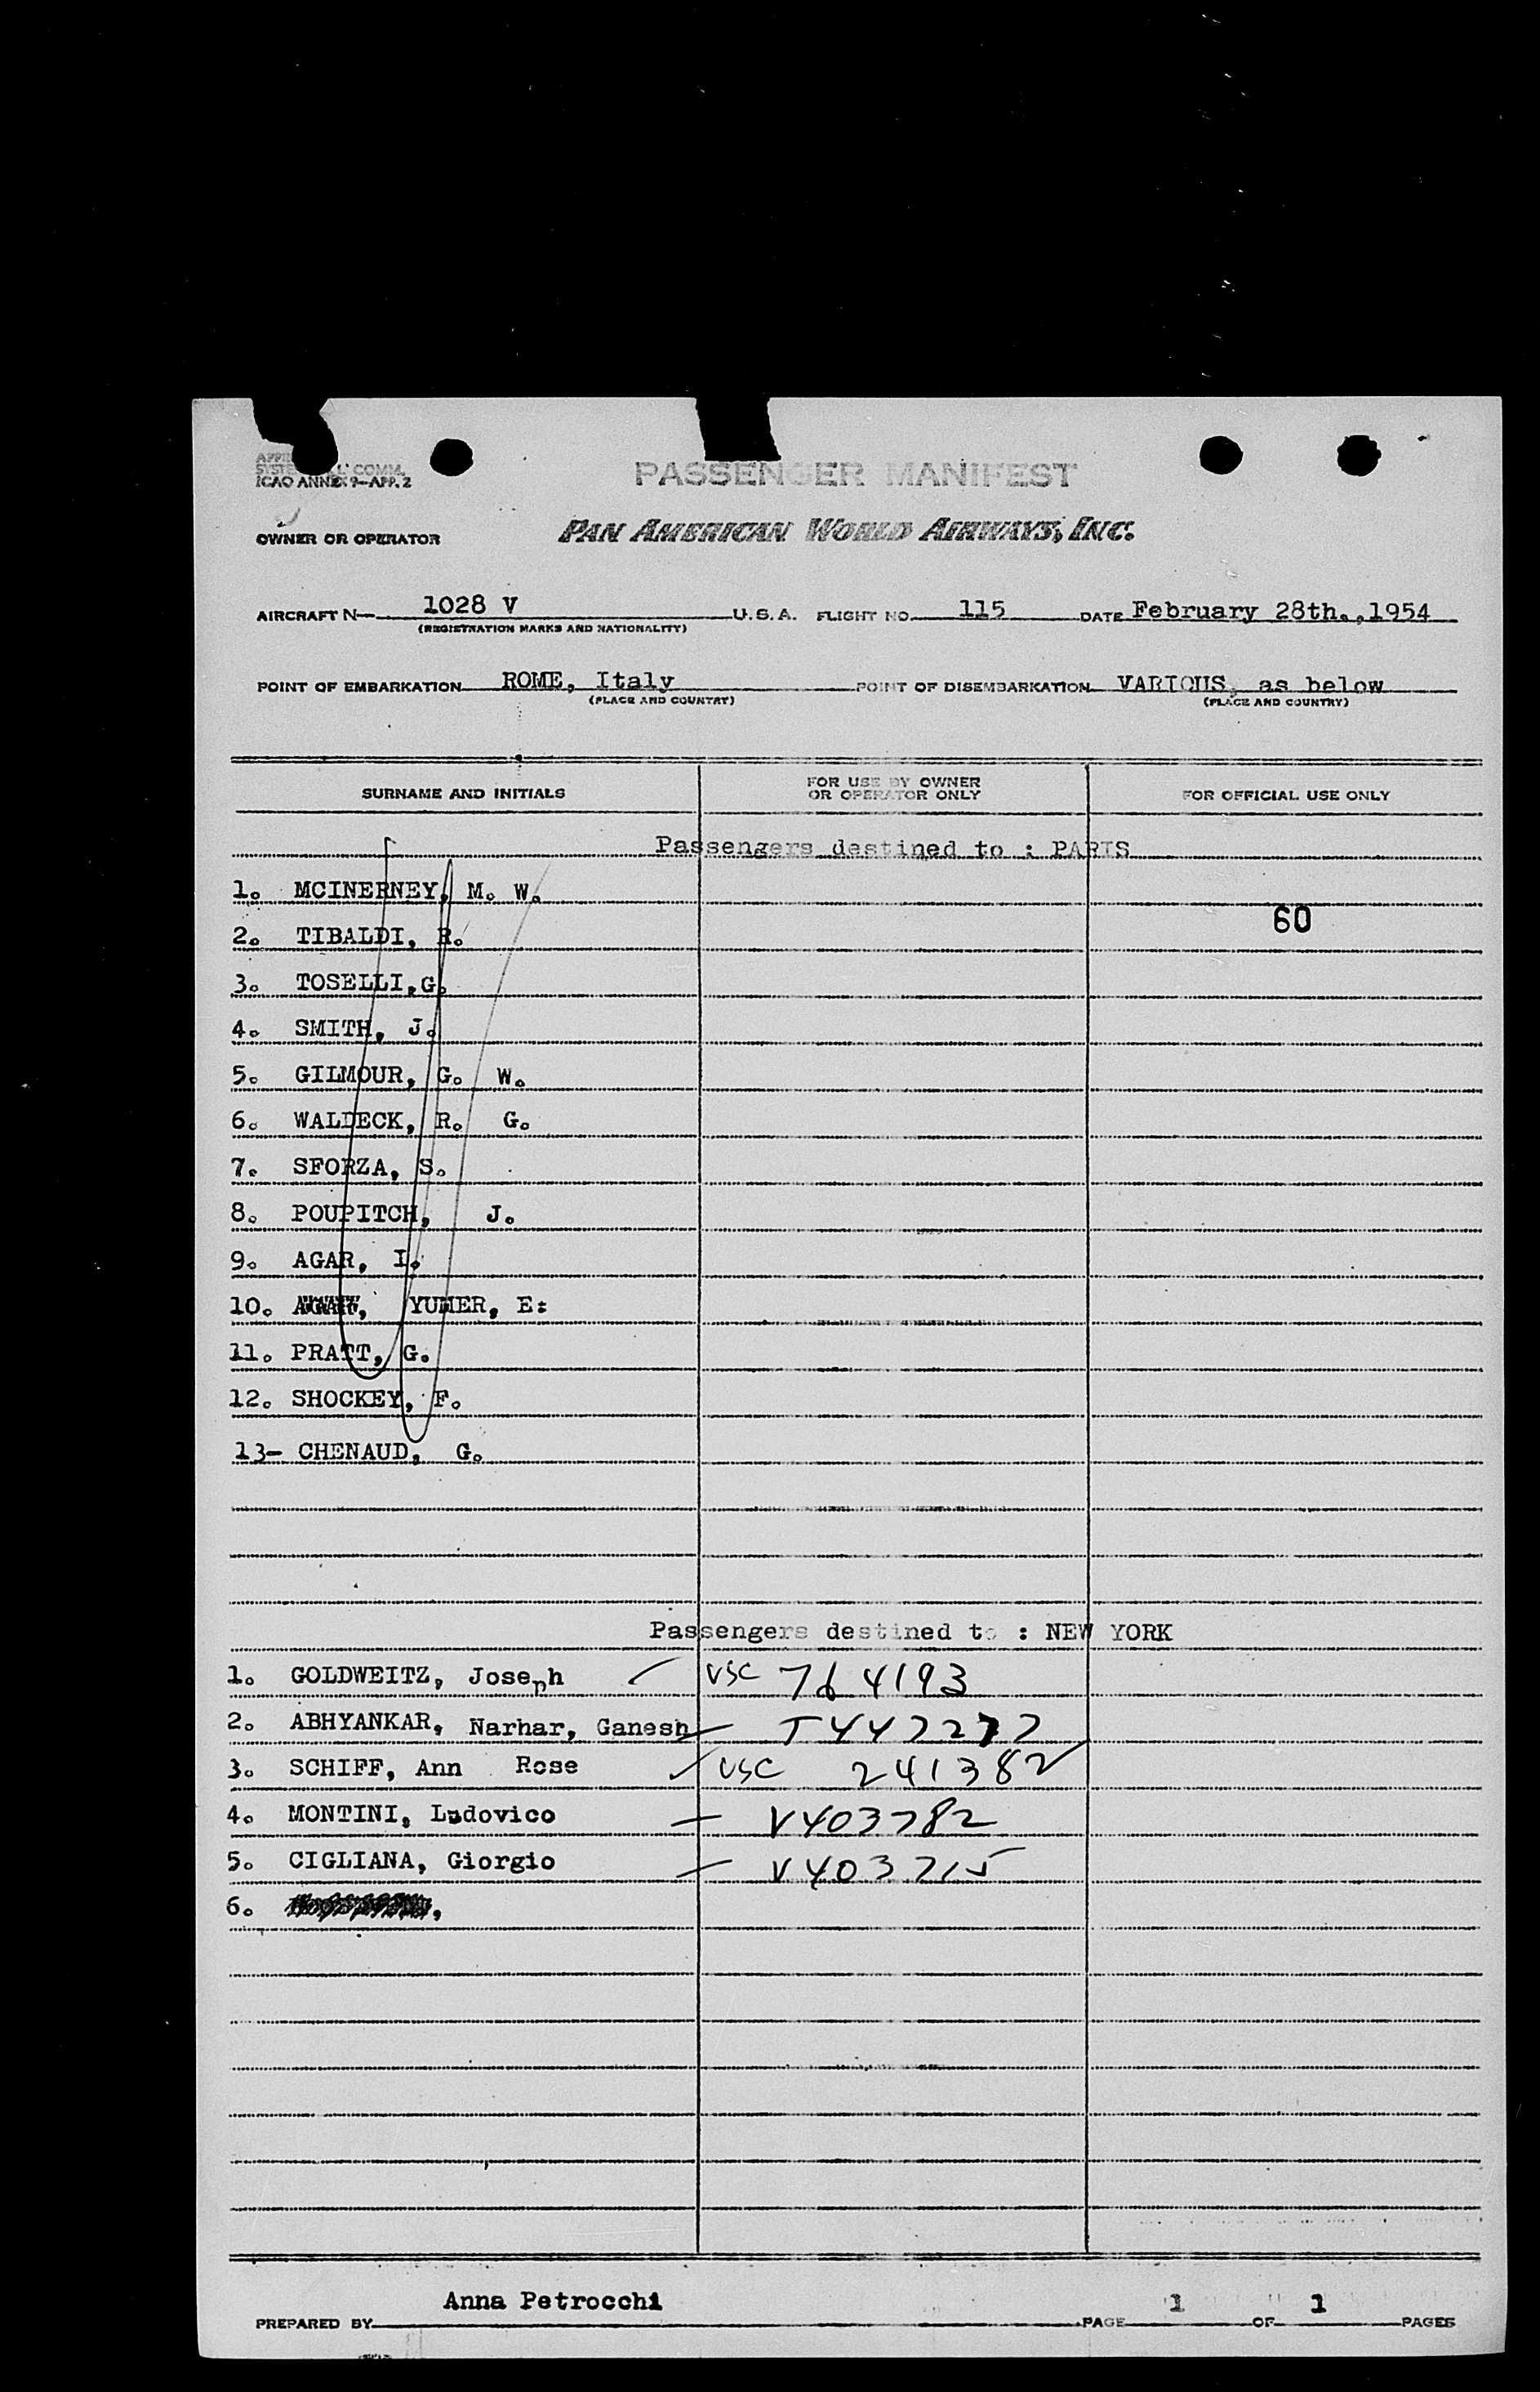 COMM.
ICAO ANNEX 9—APP. 2
PASSENGER MANIFEST
OWNER OR OPERATOR
PAN AMERICAN WORLD AIRWAYS, INC.
AIRCRAFT N— 1028 V U.S.A. FLIGHT NO. 115 DATE February 28th.,1954
(REGISTRATION MARKS AND NATIONALITY)
POINT OF EMBARKATION ROME, Italy POINT OF DISEMBARKATION VARIOUS, as below
(PLACE AND COUNTRY) (PLACE AND COUNTRY)
SURNAME AND INITIALS FOR USE BY OWNER OR OPERATOR ONLY FOR OFFICIAL USE ONLY
Passengers destined to : PARIS
1. MCINERNEY, M. W.
60
2. TIBALDI, R.
3. TOSELLI,G.
4. SMITH, J.
5. GILMOUR, G. W.
6. WALDECK, R. G.
7. SFORZA, S.
8. POUPITCH, J.
9. AGAR, I.
10. YUMER, E:
11. PRATT, G.
12. SHOCKEY, F.
13- CHENAUD, G.
Passengers destined to : NEW YORK
1. GOLDWEITZ, Joseph USC 764193
2. ABHYANKAR, Narhar, Ganesh T447277
3. SCHIFF, Ann Rose USC 241382
4. MONTINI, Ludovico V403782
5. CIGLIANA, Giorgio V403715
6.
PREPARED BY Anna Petrocchi PAGE 1 OF 1 PAGES